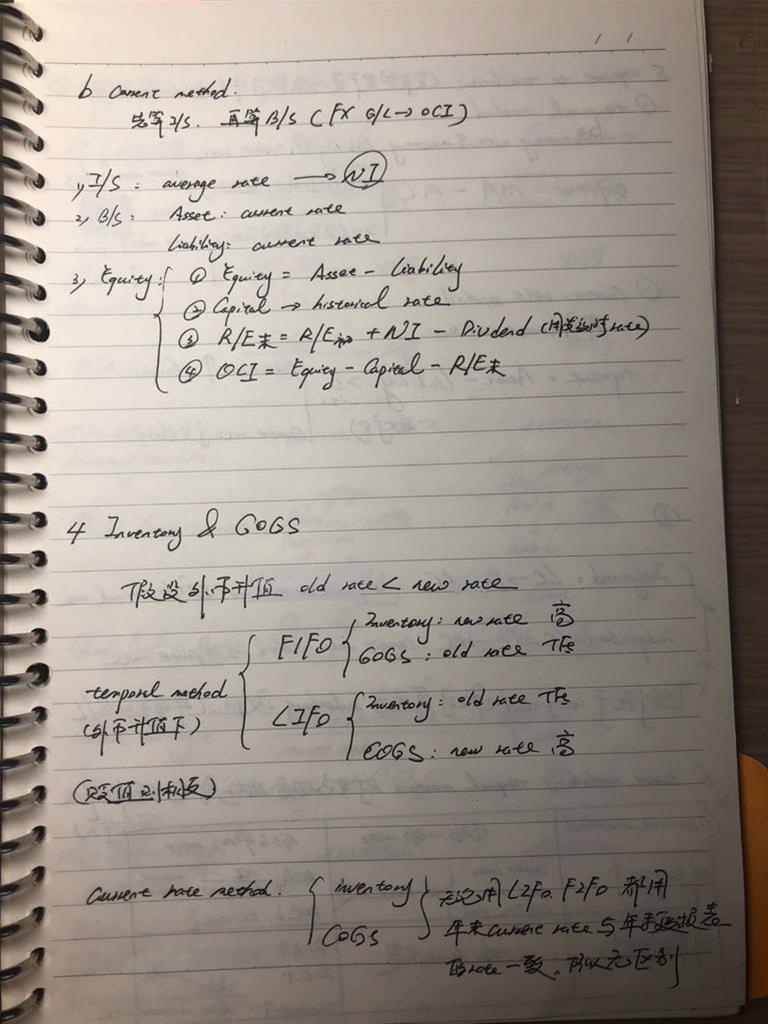 b Current method.
先算I/S. 再算B/S (FX G/L→OCI)
1) I/S: average rate → NI
2) B/S: Asset: current rate
Liability: current rate
3) Equity: ① Equity = Asset - Liability
② Capital → historical rate
③ R/E末 = R/E初 + NI - Dividend (用发放时rate)
④ OCI = Equity - Capital - R/E末
4 Inventory & COGS
假设外币升值 old rate < new rate
temporal method
(外币升值下)
FIFO
Inventory: new rate 高
COGS: old rate 低
LIFO
Inventory: old rate 低
COGS: new rate 高
(贬值则相反)
Current rate method.
inventory
COGS
无论用LIFO. FIFO 都用
年末current rate 与年末报表
的rate一致, 所以无区别